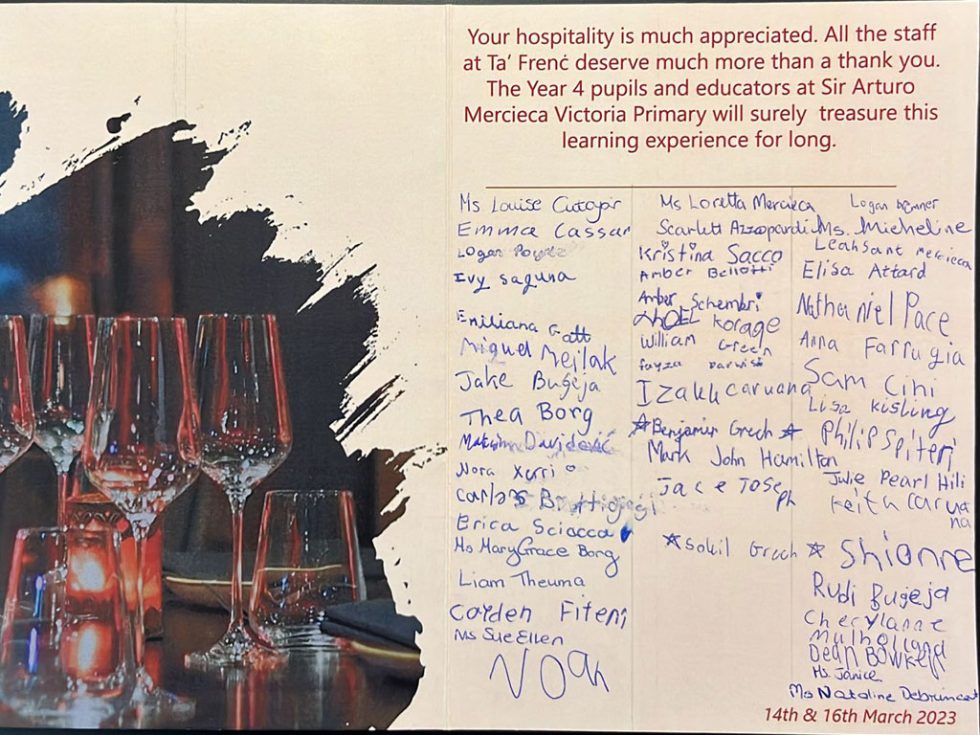 Your hospitality is much appreciated. All the staff
at Ta’ Frenċ deserve much more than a thank you.
The Year 4 pupils and educators at Sir Arturo
Mercieca Victoria Primary will surely treasure this
learning experience for long.
Ms Louise Cutajar
Emma Cassar
Logan
Ivy Saguna
Emiliana Gatt
Miguel Mejlak
Jake Bugeja
Thea Borg
Davidović
Nora Xerri
Carlos
Erica Sciacca
Ms MaryGrace Borg
Liam Theuma
Cayden Fiteni
Ms Sue Ellen
Noah
Ms Loretta Mercieca
Scarlett Azzopardi
Kristina Sacco
Amber Bellotti
Amber Schembri
Korage
William Green
Izakk Caruana
Benjamin Grech
Mark John Hamilton
Jace Joseph
Soheil Grech
Logan
Ms. Micheline
Leah Sant Mercieca
Elisa Attard
Nathaniel Pace
Anna Farrugia
Sam Cini
Lisa Kisling
Philip Spiteri
Julie Pearl Hili
Keith Carua
na
Shionne
Rudi Bugeja
Cherylanne
Mulholland
Dean Bowker
Ms. Janice
Ms Nataline
14th & 16th March 2023